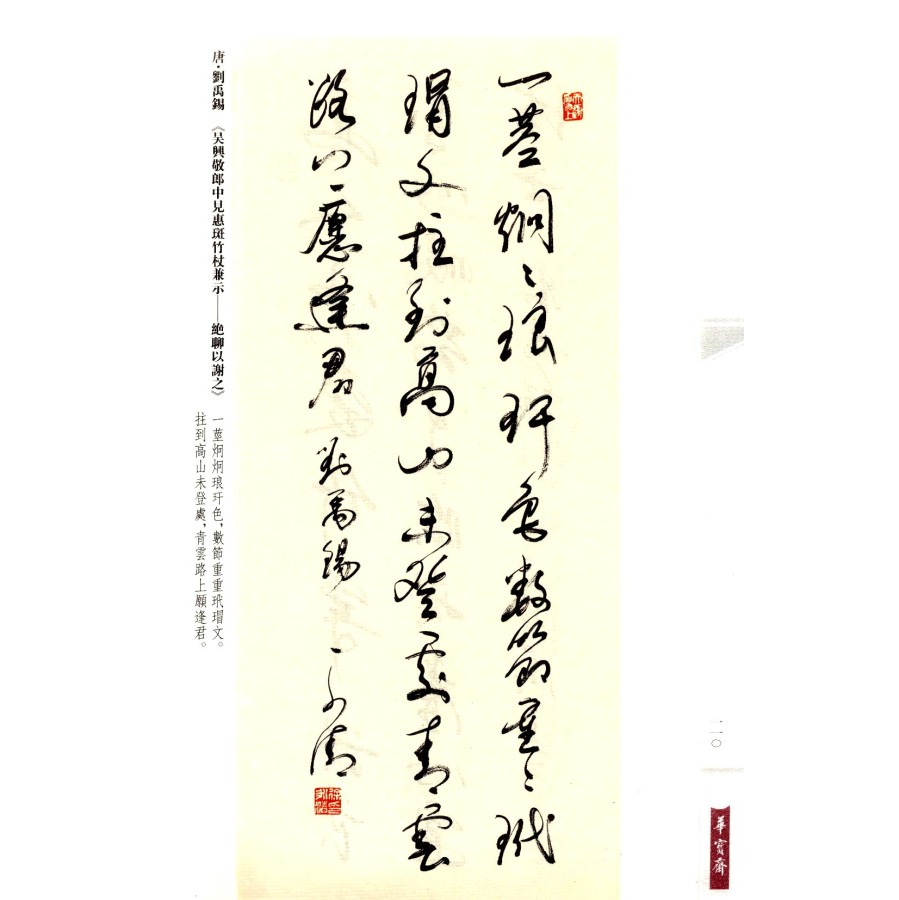 華寶齋
一莖炯〻琅玕色數節重〻玳
瑁文拄到高山未登處青雲
路上應逢君 劉禹錫
唐·劉禹錫 《吴興敬郎中見惠斑竹杖兼示——絶聊以謝之》
一莖炯炯琅玕色，數節重重玳瑁文。
拄到高山未登處，青雲路上願逢君。